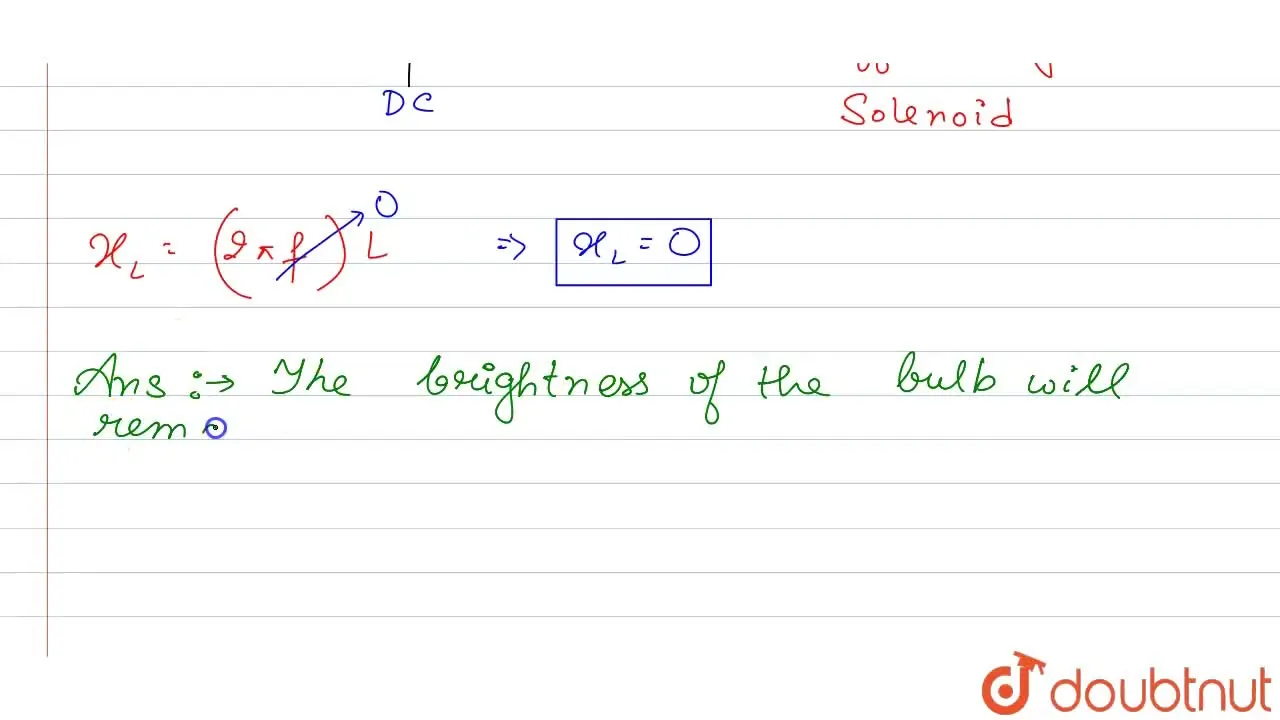 DC
Solenoid
O
X_L = (2πf) L => X_L = O
Ans :→ The brightness of the bulb will
rem
doubtnut